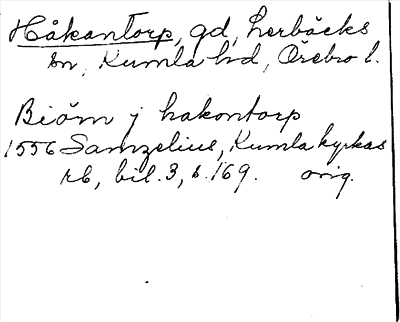 Håkantorp, gd, Lerbäcks
sn, Kumla hd, Örebro l.
Biörn j hakontorp
1556 Samzelius, Kumla kyrkas
rb, bil. 3, s. 169. orig.